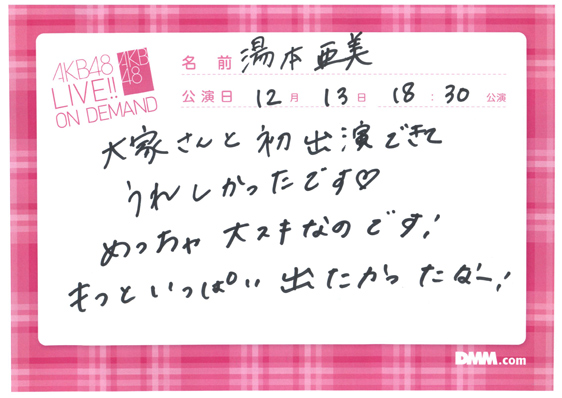 AKB48
LIVE!!
ON DEMAND
AKB
48
名 前 湯本亜美
公演日 12月 13日 18:30公演
大家さんと初出演できて
うれしかったです♡
めっちゃ大スキなのです!
もっといっぱい出たかったなー!
DMM.com